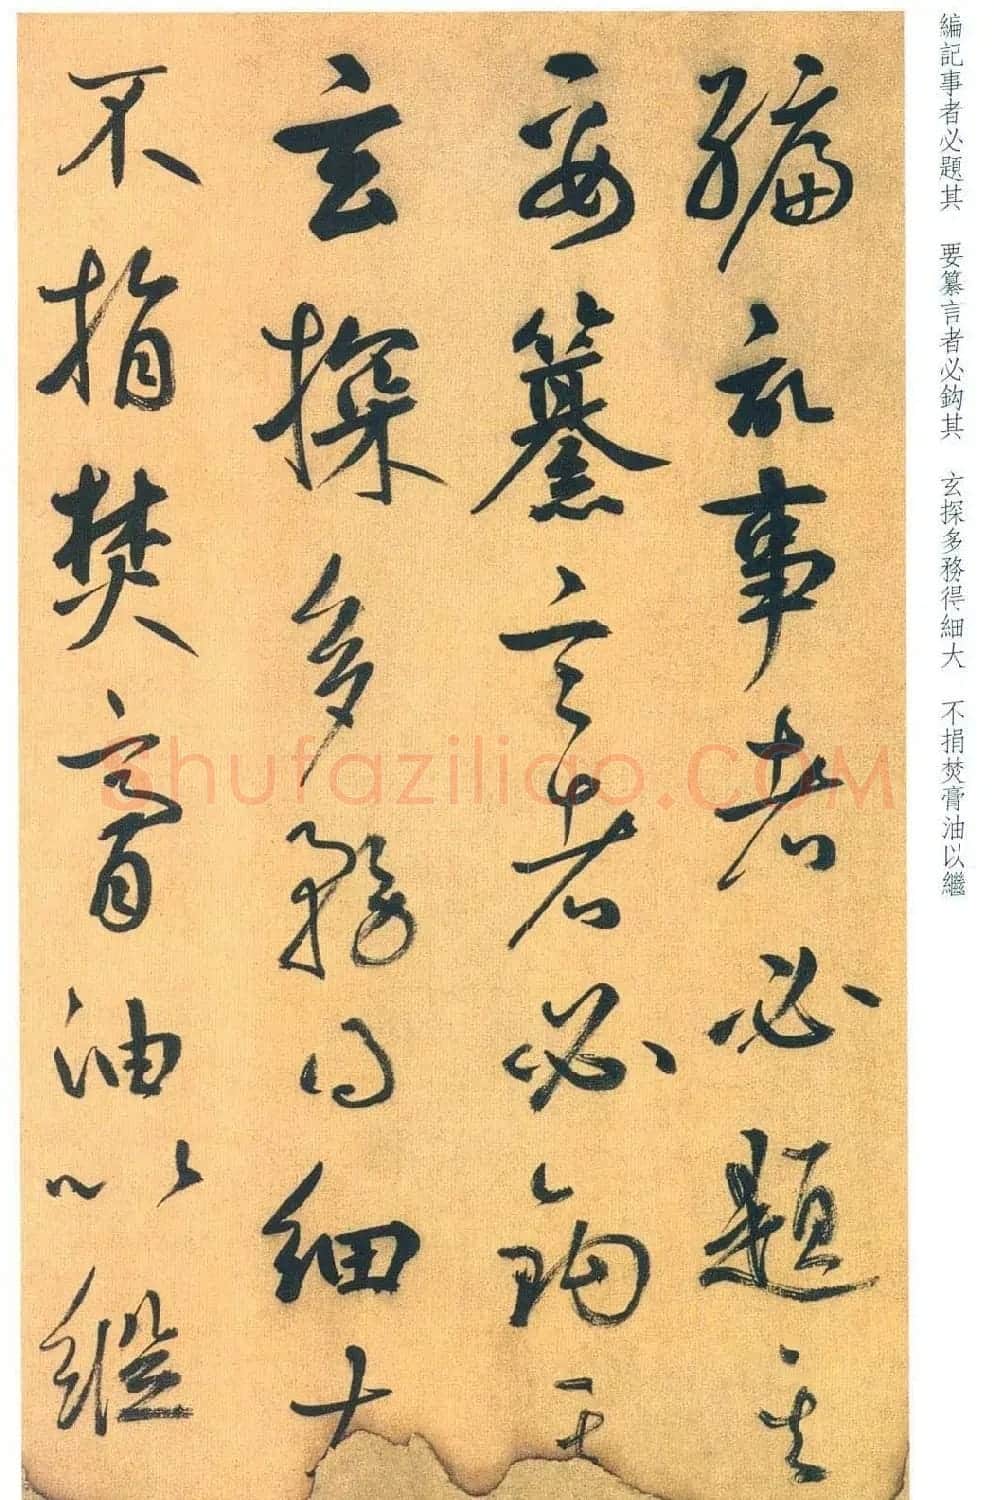 編記事者必題其 要纂言者必鈎其 玄探多務得細大 不捐焚膏油以繼
編記事者必題其
要纂言者必鈎其
玄探多務得細大
不捐焚膏油以繼
Shufaziliao.COM